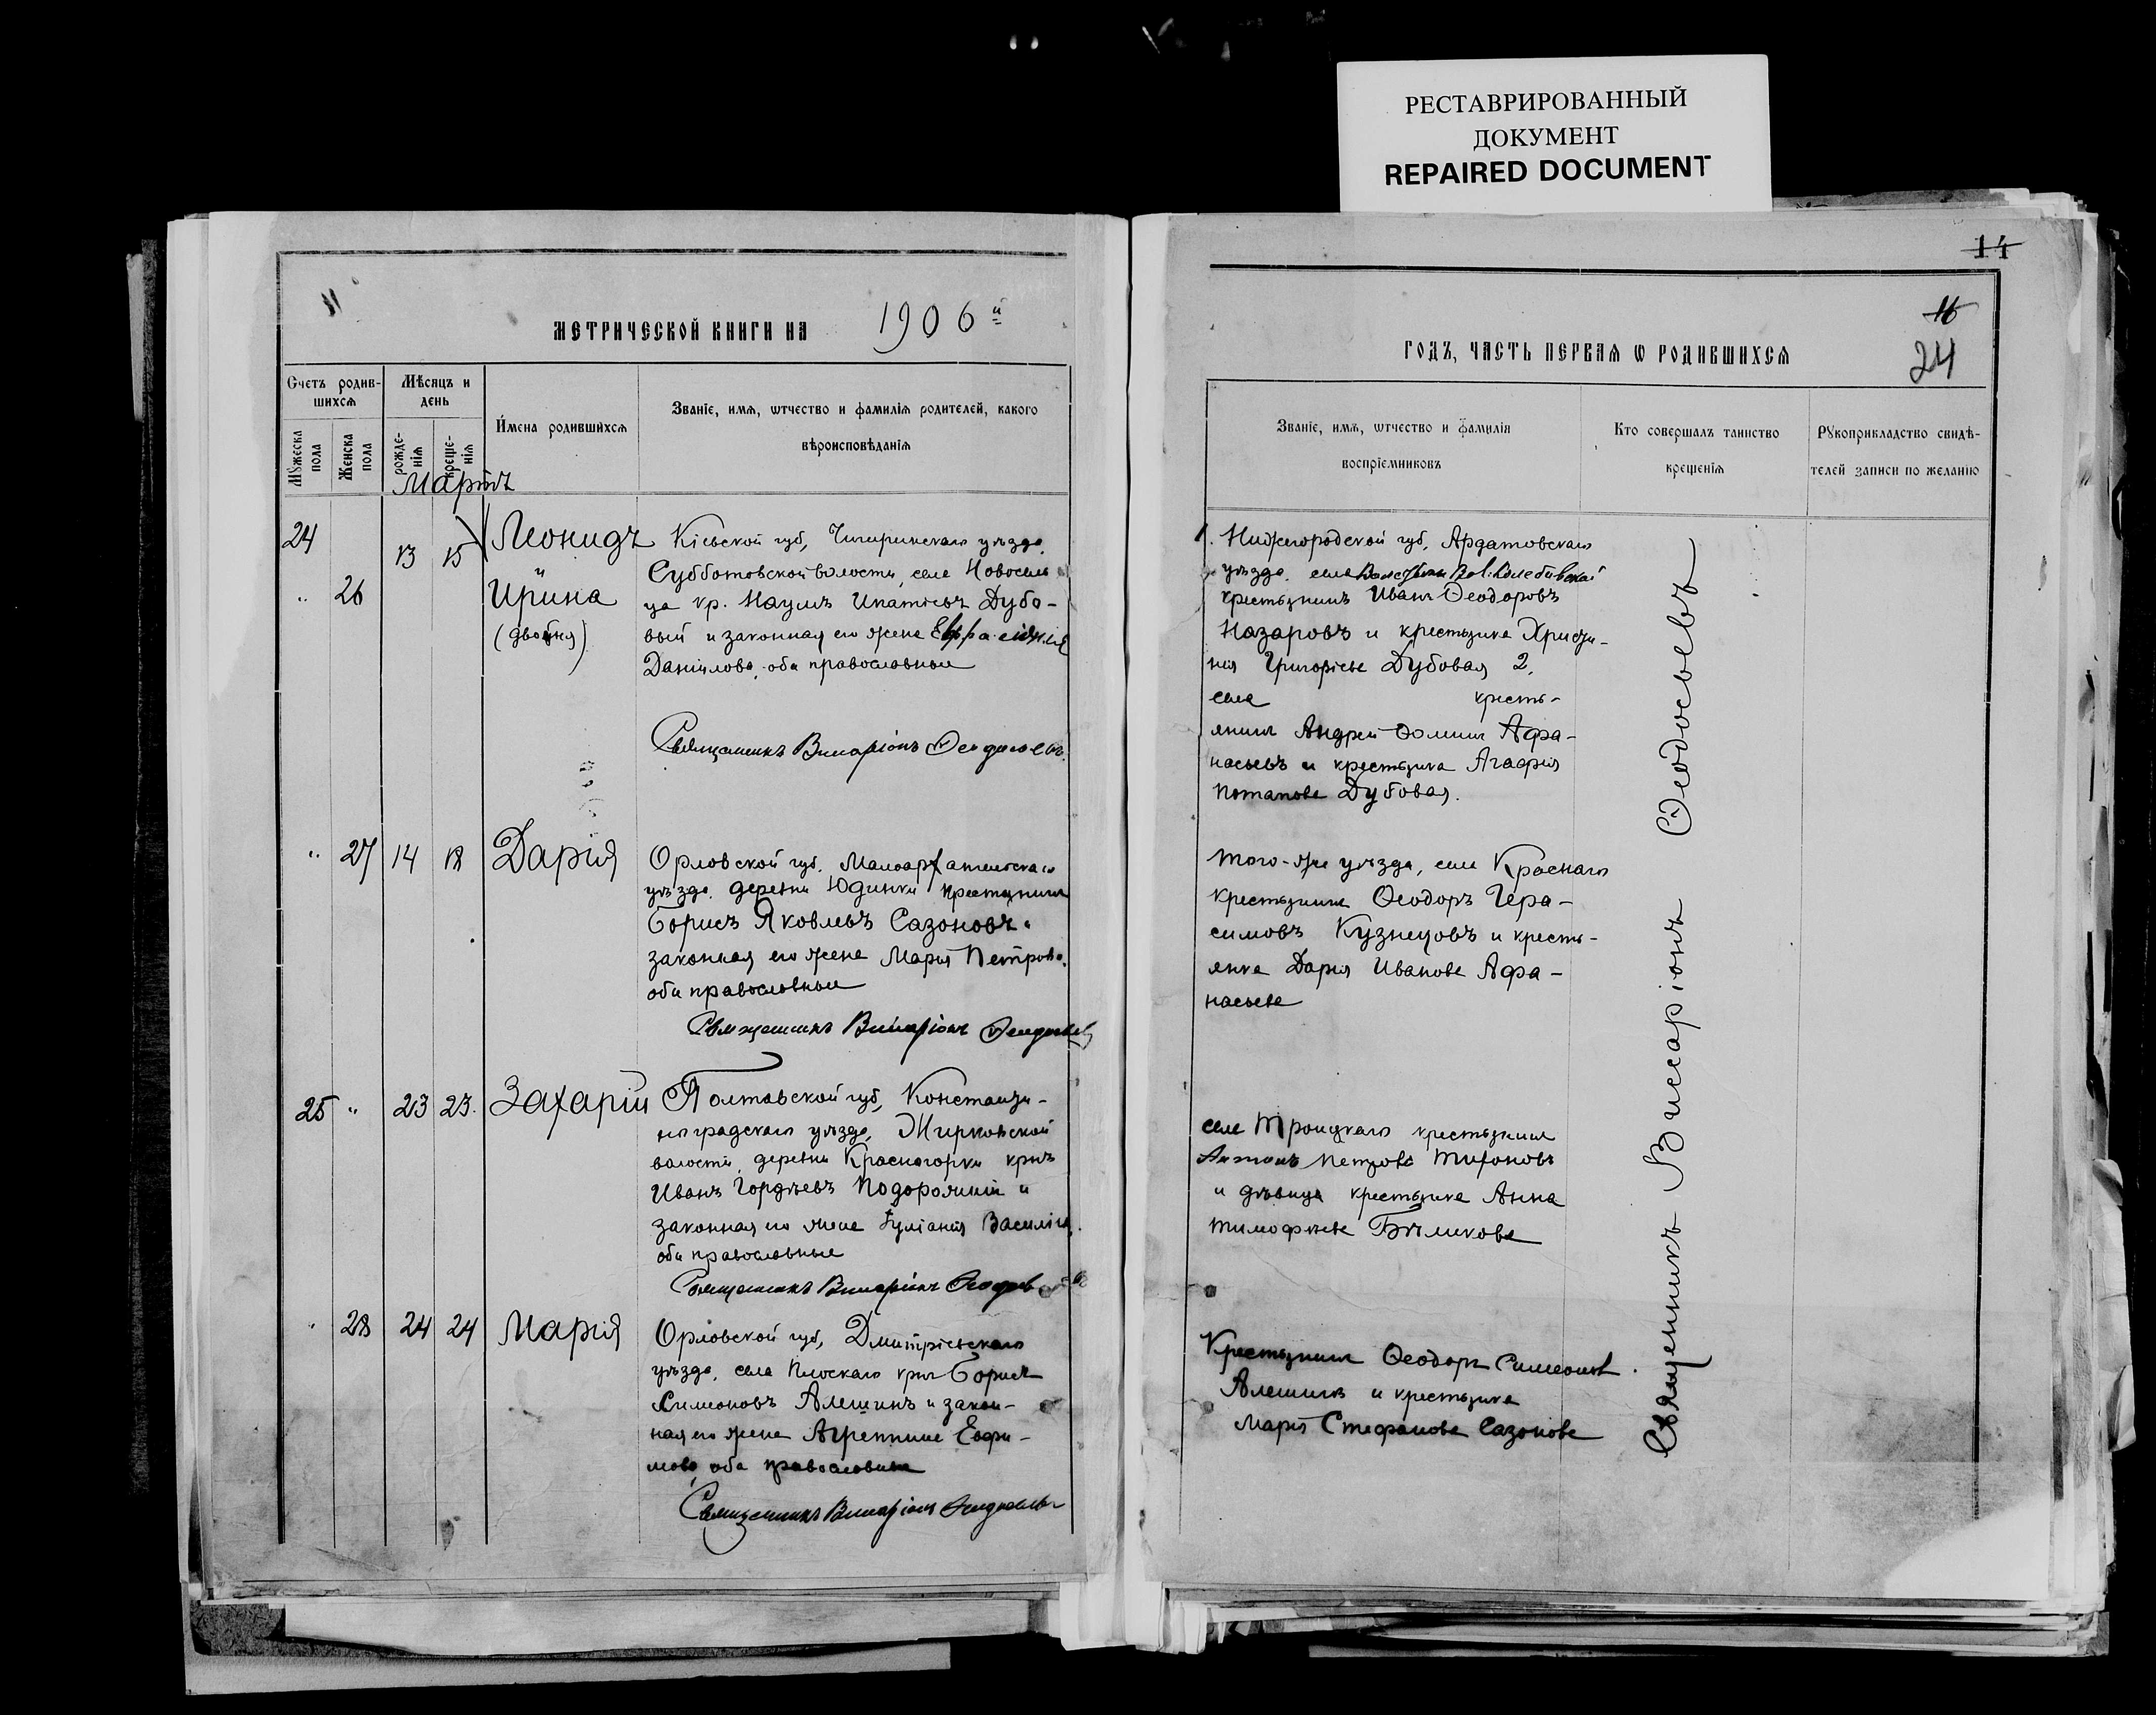 РЕСТАВРИРОВАННЫЙ
ДОКУМЕНТ
REPAIRED DOCUMENT
14
16
24
МЕТРИЧЕСКОЙ КНИГИ НА 1906й
Счетъ родив-
шихсѧ
Мѣсяцъ и
день
Имена родившихсѧ
Званїе, имѧ, ѿтчество и фамилїѧ родителей, какого
вѣроисповѣданїѧ
Мꙋжеска
пола
Женска
пола
рожде-
нїѧ
креще-
нїѧ
Мартъ
24
13 15
Леонидъ
„ 26
Ирина
(двойня)
Кіевской губ, Чигиринскаго уѣзда,
Субботовской волости, села Новосель
ца кр. Наумъ Игнатіевъ Дубо-
вый и законная его жена
Даніилова, оба православные
Священникъ Виссаріонъ Ѳеодосьевъ.
„ 27 14 18 Дарія
Орловской губ. Малоархангельскаго
уѣзда, деревни Юдинки крестьянинъ
Борисъ Яковлевъ Сазоновъ и
законная его жена Марія Петрова.
оба православные
Священникъ Виссаріонъ Ѳеодосьевъ
25 „ 23 23. Захарій
Полтавской губ, Константи-
ноградскаго уѣзда,
волости, деревни Красногорки крнъ
Иванъ Гордѣевъ Подорожній и
законная его жена Іуліанія Василіева.
оба православные
Священникъ Виссаріонъ Ѳеодосьевъ
„ 28 24 24 Марія
Орловской губ, Дмитріевскаго
уѣзда, села Плоскаго крнъ Борисъ
Симеоновъ Алешинъ и закон-
ная его жена Агриппина Евфи-
мова, оба православные
Священникъ Виссаріонъ Ѳеодосьевъ
ГОДЪ, ЧАСТЬ ПЕРВАѦ Ѡ РОДИВШИХСѦ
Званїе, имѧ, ѿтчество и фамилїѧ
воспрїемниковъ
Кто совершалъ таинство
крещенїѧ
Рꙋкоприкладство свидѣ-
телей записи по желанїю
1. Нижегородской губ, Ардатовскаго
уѣзда, села
крестьянинъ Иванъ Ѳеодоровъ
Назаровъ и крестьянка Христи-
нія Григоріева Дубовая 2,
села кресть-
янинъ Андрей Ѳоминъ Афа-
насьевъ и крестьянка Агафія
Потапова Дубовая.
того-же уѣзда, села Краснаго
крестьянинъ Ѳеодоръ Гера-
симовъ Кузнецовъ и кресть-
янка Дарія Иванова Афа-
насьева
села Троицкаго крестьянинъ
Антонъ Петровъ Тихоновъ
и дѣвица крестьянка Анна
Тимофѣева Бѣликова
Крестьянинъ Ѳеодоръ Симеоновъ
Алешинъ и крестьянка
Марія Стефанова Сазонова
Священникъ Виссаріонъ Ѳеодосьевъ